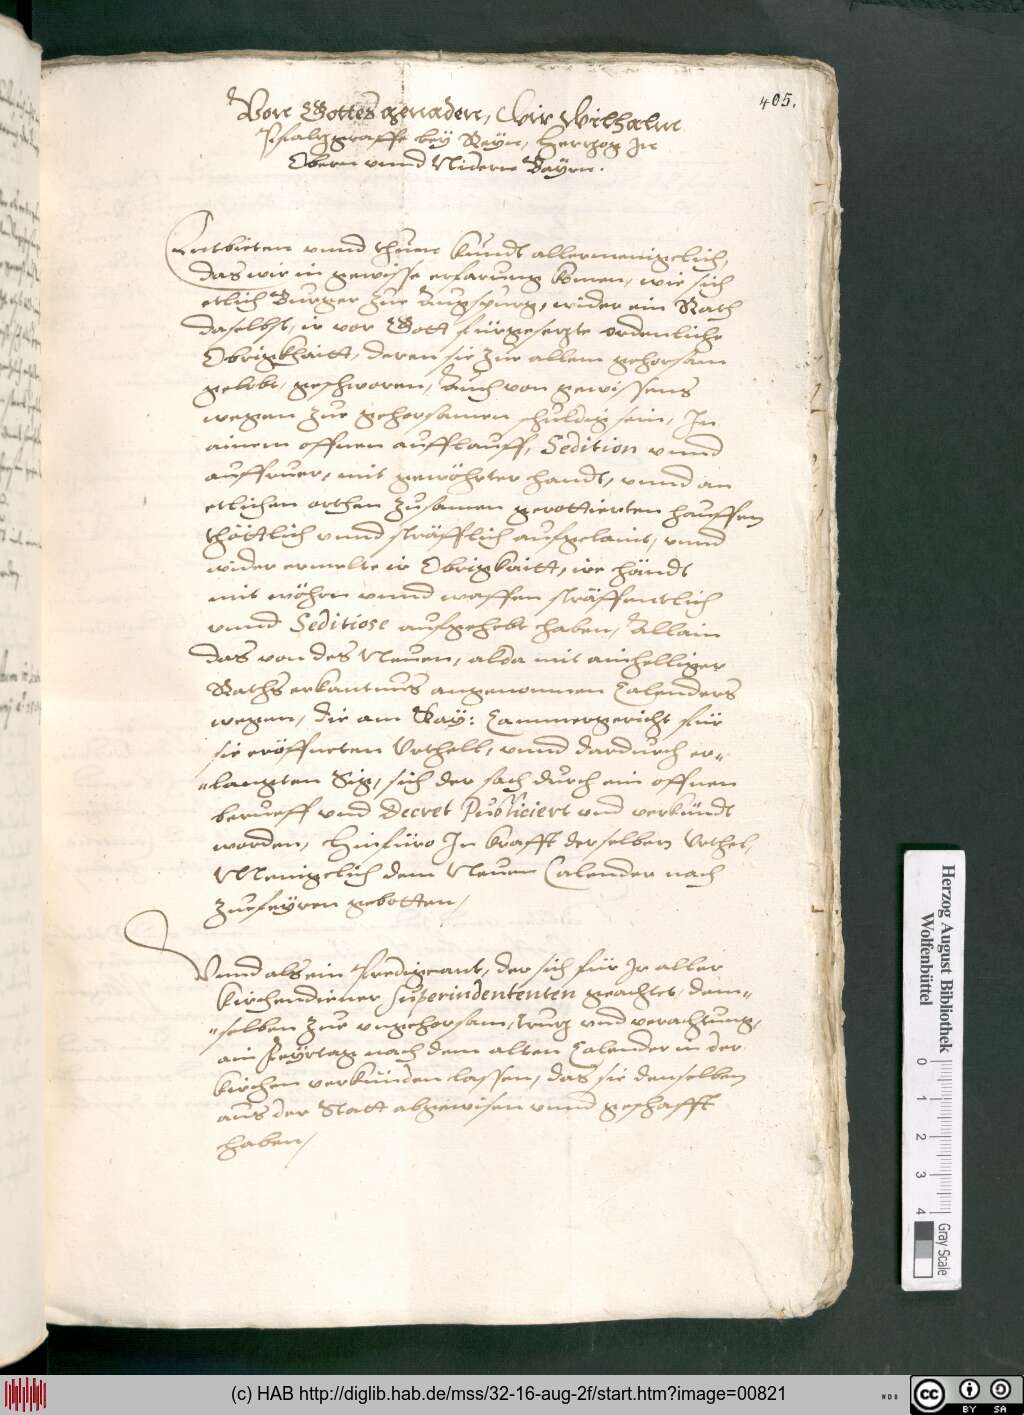 405.
Von Gottes genaden, Wir Wilhalm
Pfaltzgraffe bey Reyn, Hertzog In
Obern vnnd Nidern Bayrn.
Entbieten vnnd thuen kundt allermenigclich,
das wir in gewisse erfarung komen, wie sich
etlich Burger zue Augspurg, wider ein Rath
daselbst, ir vor Gott fürgesetzte ordenliche
Obrigkhaitt, deren sie zue allem gehorsam
gelobt, geschworen, Auch von gewissens
wegen zue gehorsamen schuldig sein, In
ainem offnen aufflauff, Sedition vnnd
auffruer, mit gewöhrter handt, vnnd an
etlichen orthen zusamen gerottierten hauffen
thättlich vnnd sträfflich aufgelaint, vnnd
wider ermelte ir Obrigkaitt, ire händt
mit wöhrn vnnd waffen sträffentlich
vnnd Seditiose aufgehebt haben, Allain
das von des Neuen, alda mit ainhelliger
Raths erkantnus angenommen Calenders
wegen, die am Kay: Cammergericht für
sie eröffneten Urthell, vnnd dardurch er¬
langten Sig, sich der sach durch ein offnen
berueff vnd Decret Publiciert vnd verkündt
worden, Hinfüro In krafft derselben Urthel,
Menigclich dem Neuen Calender nach
zuefeyren gebotten,
Vnnd als ein Predigcant, der sich für Ir aller
Kirchendiener Superindententen geachtet, dem¬
selben zue vngehorsam, trutz vnd verachtung,
ain Feyrtag nach dem alten Calender in der
kirchen verkünden lassen, das sie denselben
aus der Statt abgewisen vnnd geschafft
haben,
Herzog August Bibliothek
Wolfenbüttel
0 1 2 3 4
Gray Scale
(c) HAB http://diglib.hab.de/mss/32-16-aug-2f/start.htm?image=00821
WDB
CC BY SA